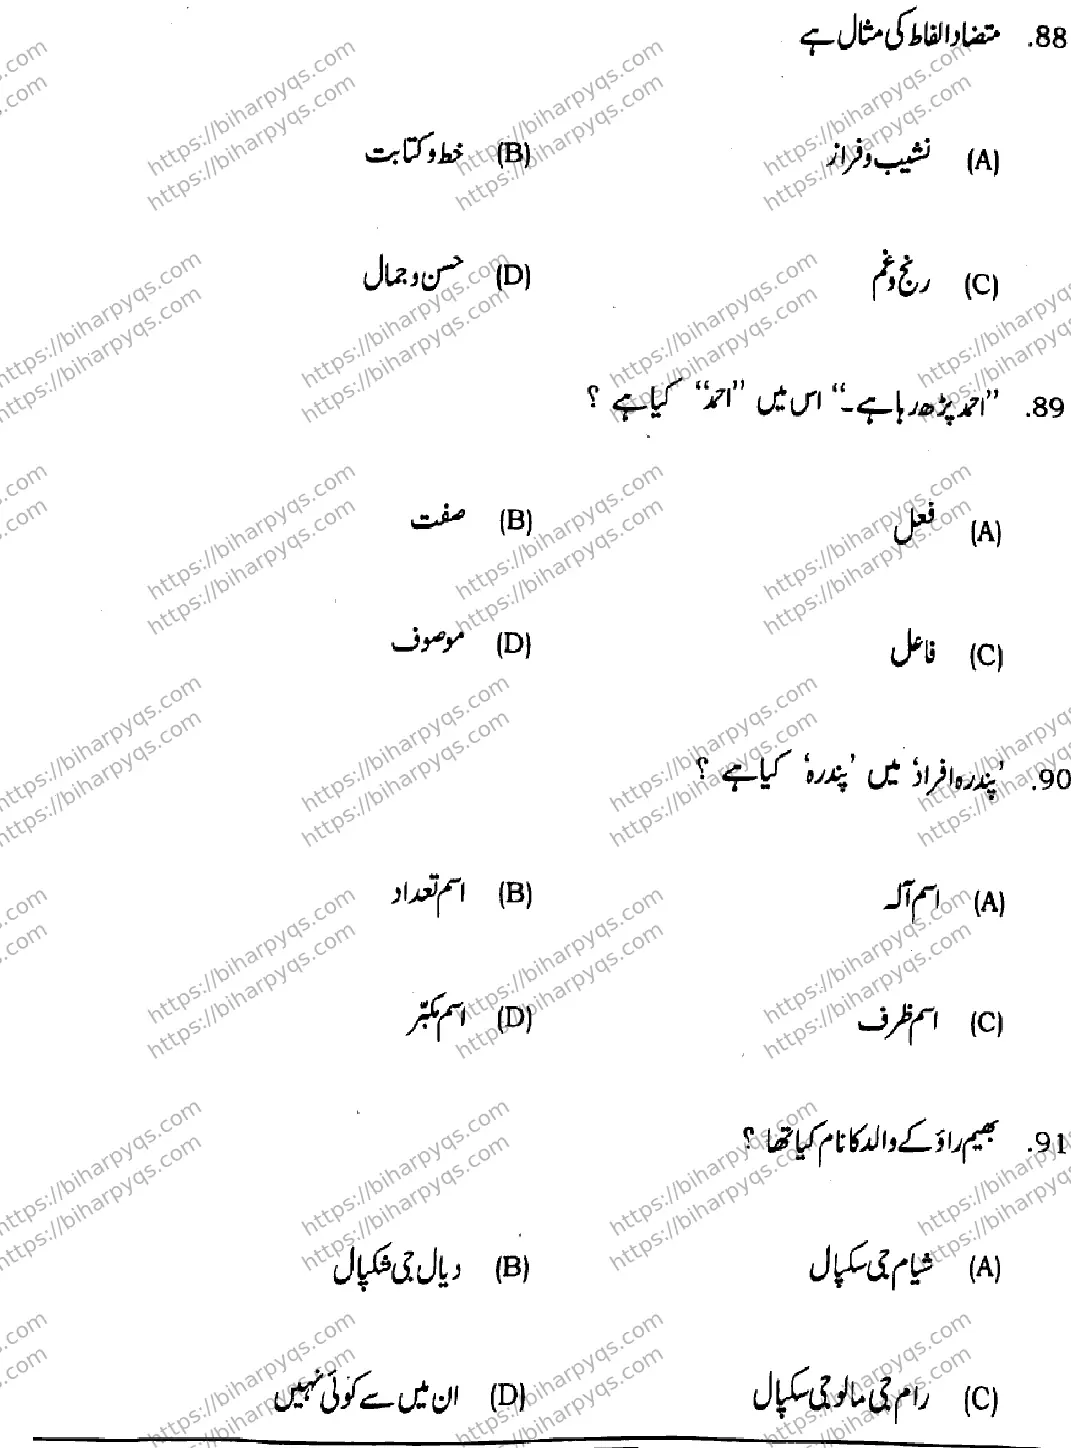 88. متضاد الفاظ کی مثال ہے
(A) نشیب و فراز (B) خط و کتابت
(C) رنج و غم (D) حسن و جمال
89. ”احمد پڑھ رہا ہے۔“ اس میں ”احمد“ کیا ہے ؟
(A) فعل (B) صفت
(C) فاعل (D) موصوف
90. ’پندرہ افراد‘ میں ’پندرہ‘ کیا ہے ؟
(A) اسم آلہ (B) اسم تعداد
(C) اسم ظرف (D) اسم مکبّر
91. بھیم راؤ کے والد کا نام کیا تھا ؟
(A) شیام جی سکپال (B) دیال جی شکپال
(C) رام جی مالو جی سکپال (D) ان میں سے کوئی نہیں
https://biharpyqs.com